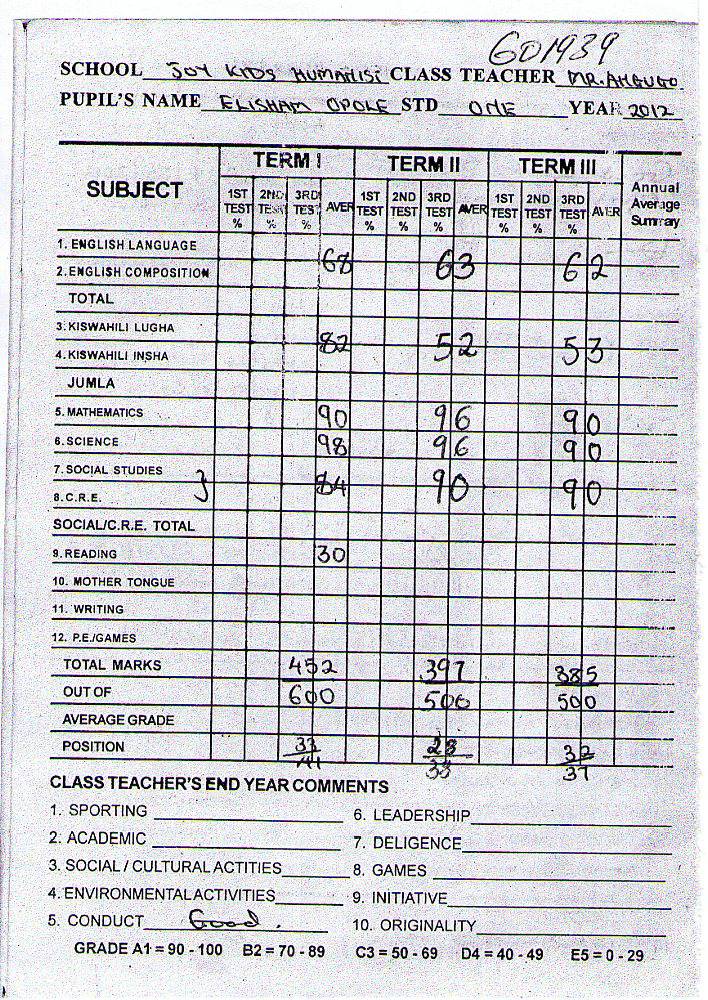 601939
SCHOOL JOY KIDS HUMANISI CLASS TEACHER MR. AHGUGO
PUPIL'S NAME ELISHAM OPOLE STD ONE YEAR 2012
SUBJECT TERM I TERM II TERM III Annual Average Summary
1ST TEST % 2ND TEST % 3RD TEST % AVER 1ST TEST % 2ND TEST % 3RD TEST % AVER 1ST TEST % 2ND TEST % 3RD TEST % AVER
1. ENGLISH LANGUAGE
68 63 62
2. ENGLISH COMPOSITION
TOTAL
3. KISWAHILI LUGHA
82 52 53
4. KISWAHILI INSHA
JUMLA
5. MATHEMATICS 90 96 90
6. SCIENCE 98 96 90
7. SOCIAL STUDIES
} 84 90 90
8. C.R.E.
SOCIAL/C.R.E. TOTAL
9. READING 30
10. MOTHER TONGUE
11. WRITING
12. P.E./GAMES
TOTAL MARKS 452 397 385
OUT OF 600 500 500
AVERAGE GRADE
POSITION 33 28 32
41 33 37
CLASS TEACHER'S END YEAR COMMENTS
1. SPORTING 6. LEADERSHIP
2. ACADEMIC 7. DELIGENCE
3. SOCIAL / CULTURAL ACTITIES 8. GAMES
4. ENVIRONMENTAL ACTIVITIES 9. INITIATIVE
5. CONDUCT Good. 10. ORIGINALITY
GRADE A1 = 90 - 100 B2 = 70 - 89 C3 = 50 - 69 D4 = 40 - 49 E5 = 0 - 29